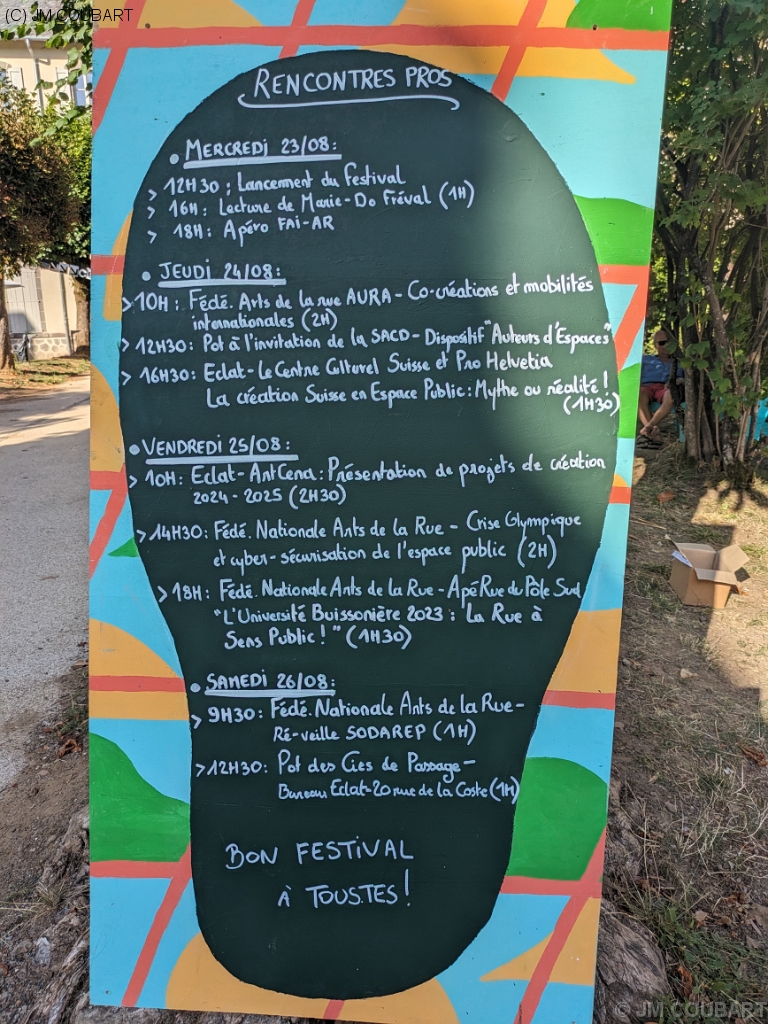 (C) JM COUBART
RENCONTRES PROS
• MERCREDI 23/08:
> 12H30 : Lancement du festival
> 16H: Lecture de Marie-Do Fréval (1H)
> 18H: Apéro FAI-AR
• JEUDI 24/08:
> 10H: Fédé. Arts de la rue AURA - Co-créations et mobilités
internationales (2H)
> 12H30: Pot à l'invitation de la SACD - Dispositif "Auteurs d'Espaces"
> 16H30: Eclat - Le Centre Culturel Suisse et Pro Helvetia
La création Suisse en Espace Public: Mythe ou réalité!
(1H30)
• VENDREDI 25/08:
> 10H: Eclat - ArtCena: Présentation de projets de création
2024-2025 (2H30)
> 14H30: Fédé. Nationale Arts de la Rue - Crise Olympique
et cyber-sécurisation de l'espace public (2H)
> 18H: Fédé. Nationale Arts de la Rue - ApéRue du Pôle Sud
"L'Université Buissonière 2023: La Rue à
Sens Public!" (1H30)
• SAMEDI 26/08:
> 9H30: Fédé. Nationale Arts de la Rue -
Ré-veille SODAREP (1H)
> 12H30: Pot des Cies de Passage -
Bureau Eclat-20 rue de la Coste (1H)
BON FESTIVAL
À TOUS.TES!
© JM COUBART